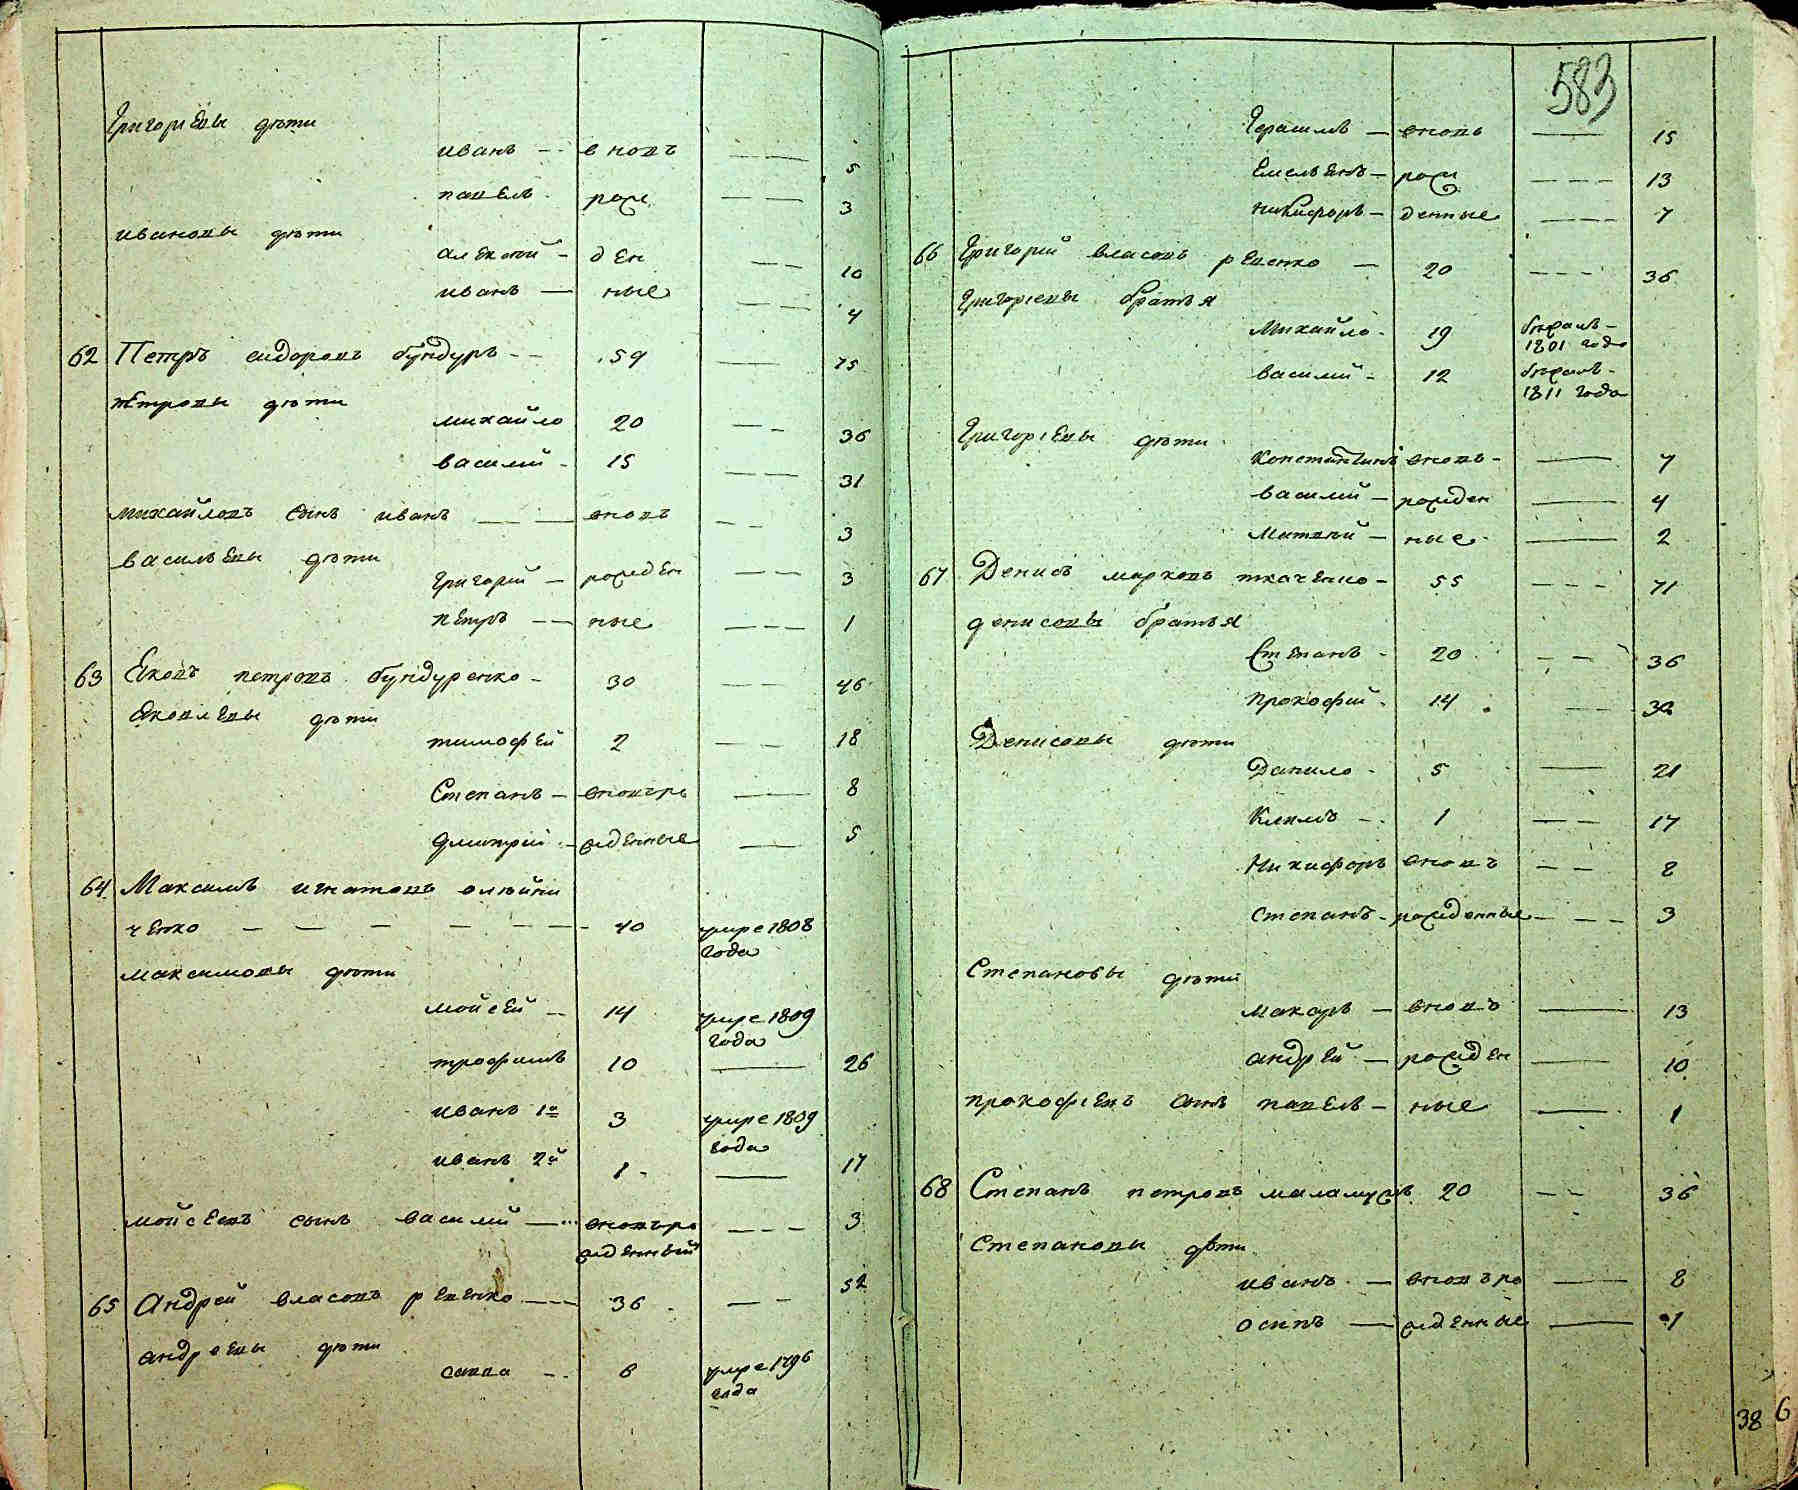 Григорьевы дѣти
иванъ — вновь — 5
павелъ рож — 3
ивановы дѣти
алексѣй — ден — 10
иванъ — ные — 4
62 Петръ сидоровъ бундуръ — 59 — 75
петровы дѣти
михайло 20 — 36
василий — 15 — 31
михайловъ сынъ иванъ — вновь — 3
васильевы дѣти
григорий — рожден — 3
петръ — ные — 1
63 Яковъ петровъ бундуренко — 30 — 46
яковлевы дѣти
тимофей 2 — 18
Степанъ — вновьро — 8
дмитрий — жденные — 5
64 Максимъ игнатовъ олѣйни
ченко — 40 умре 1808
года
максимовы дѣти
мойсей — 14 умре 1809
года
трофимъ 10 — 26
иванъ 1й 3 умре 1809
года
иванъ 2й 1 — 17
мойсеевъ сынъ василий — вновьро — 3
жденный
65 Андрей власовъ ревенко — 36 — 52
андреевы дѣти
савва — 6 умре 1796
года
583
Герасимъ — вновь — 15
Емельянъ — рож — 13
никифоръ — денные — 7
66 Григорий власовъ ревенко — 20 — 36
Григорьевы братья
Михайло — 19 бѣжалъ —
1801 года
василий — 12 бѣжалъ —
1811 года
Григорьевы дѣти
константинъ вновь — 7
василий — рожден — 4
Матвѣй — ные — 2
67 Денисъ марковъ ткаченко — 55 — 71
денисовы братья
Степанъ — 20 — 36
прокофий — 14 — 30
Денисовы дѣти
Данило — 5 — 21
Климъ — 1 — 17
Никифоръ вновь — 8
степанъ — рожденные — 3
Степановы дѣти
макаръ — вновь — 13
андрей — рожден — 10
прокофьевъ сынъ павелъ — ные — 1
68 Степанъ петровъ маламужъ 20 — 36
Степановы дѣти
иванъ — вновьро — 8
осипъ — жденные — 1
38 6